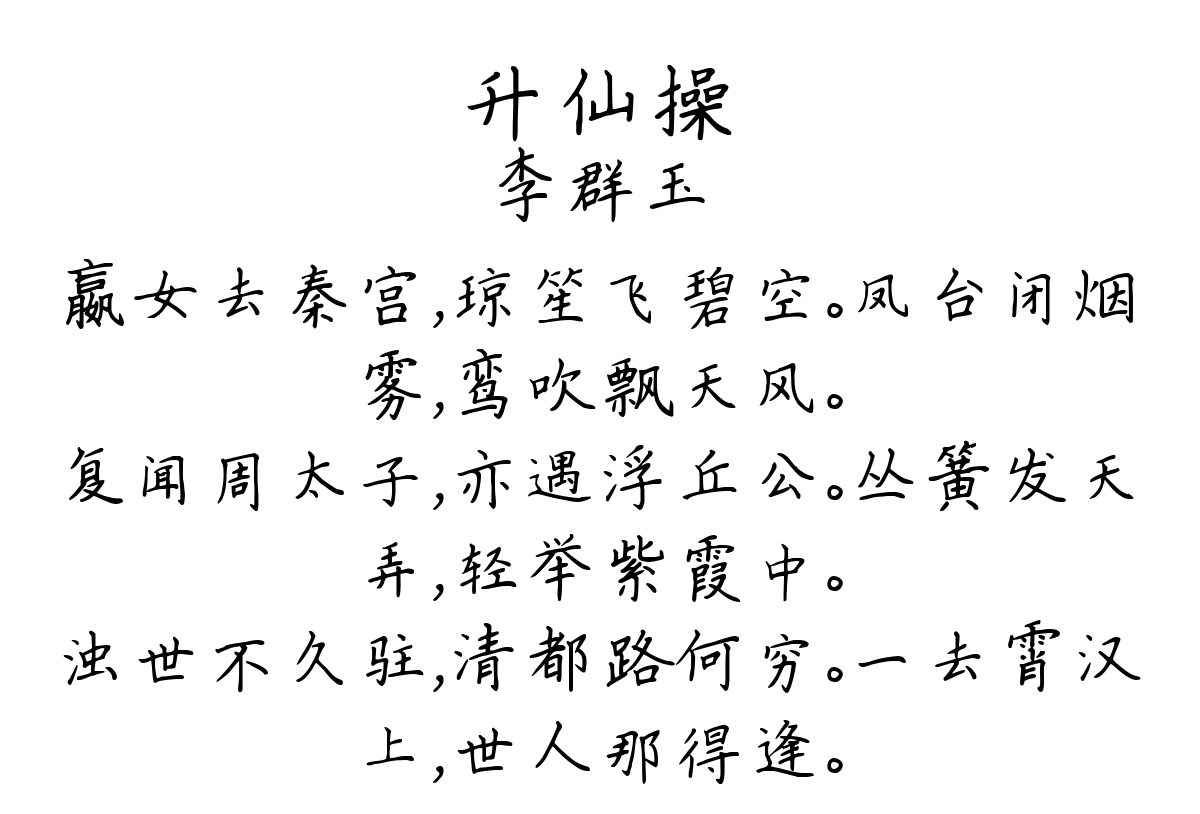 升仙操
李群玉
嬴女去秦宫,琼笙飞碧空。凤台闭烟
雾,鸾吹飘天风。
复闻周太子,亦遇浮丘公。丛簧发天
弄,轻举紫霞中。
浊世不久驻,清都路何穷。一去霄汉
上,世人那得逢。